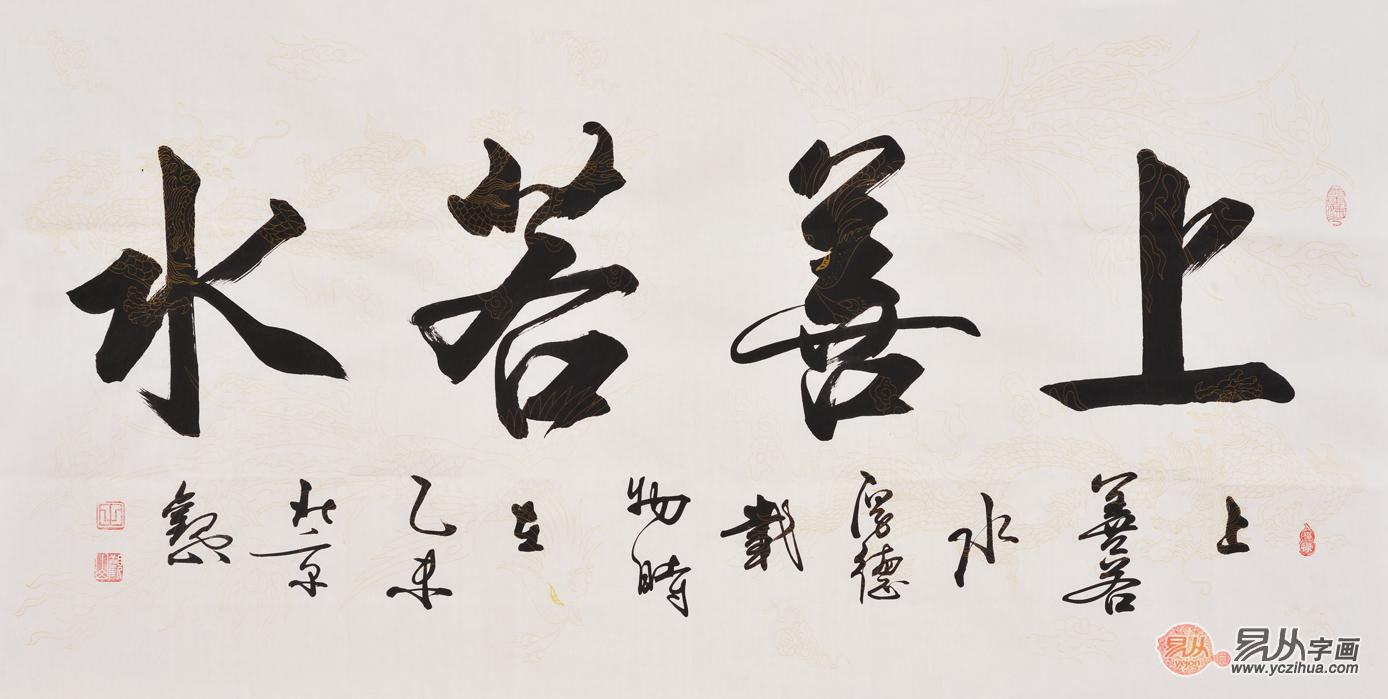 上善若水
上善若水厚德載物時在乙未北京
易从
易从字画
www.yczihua.com